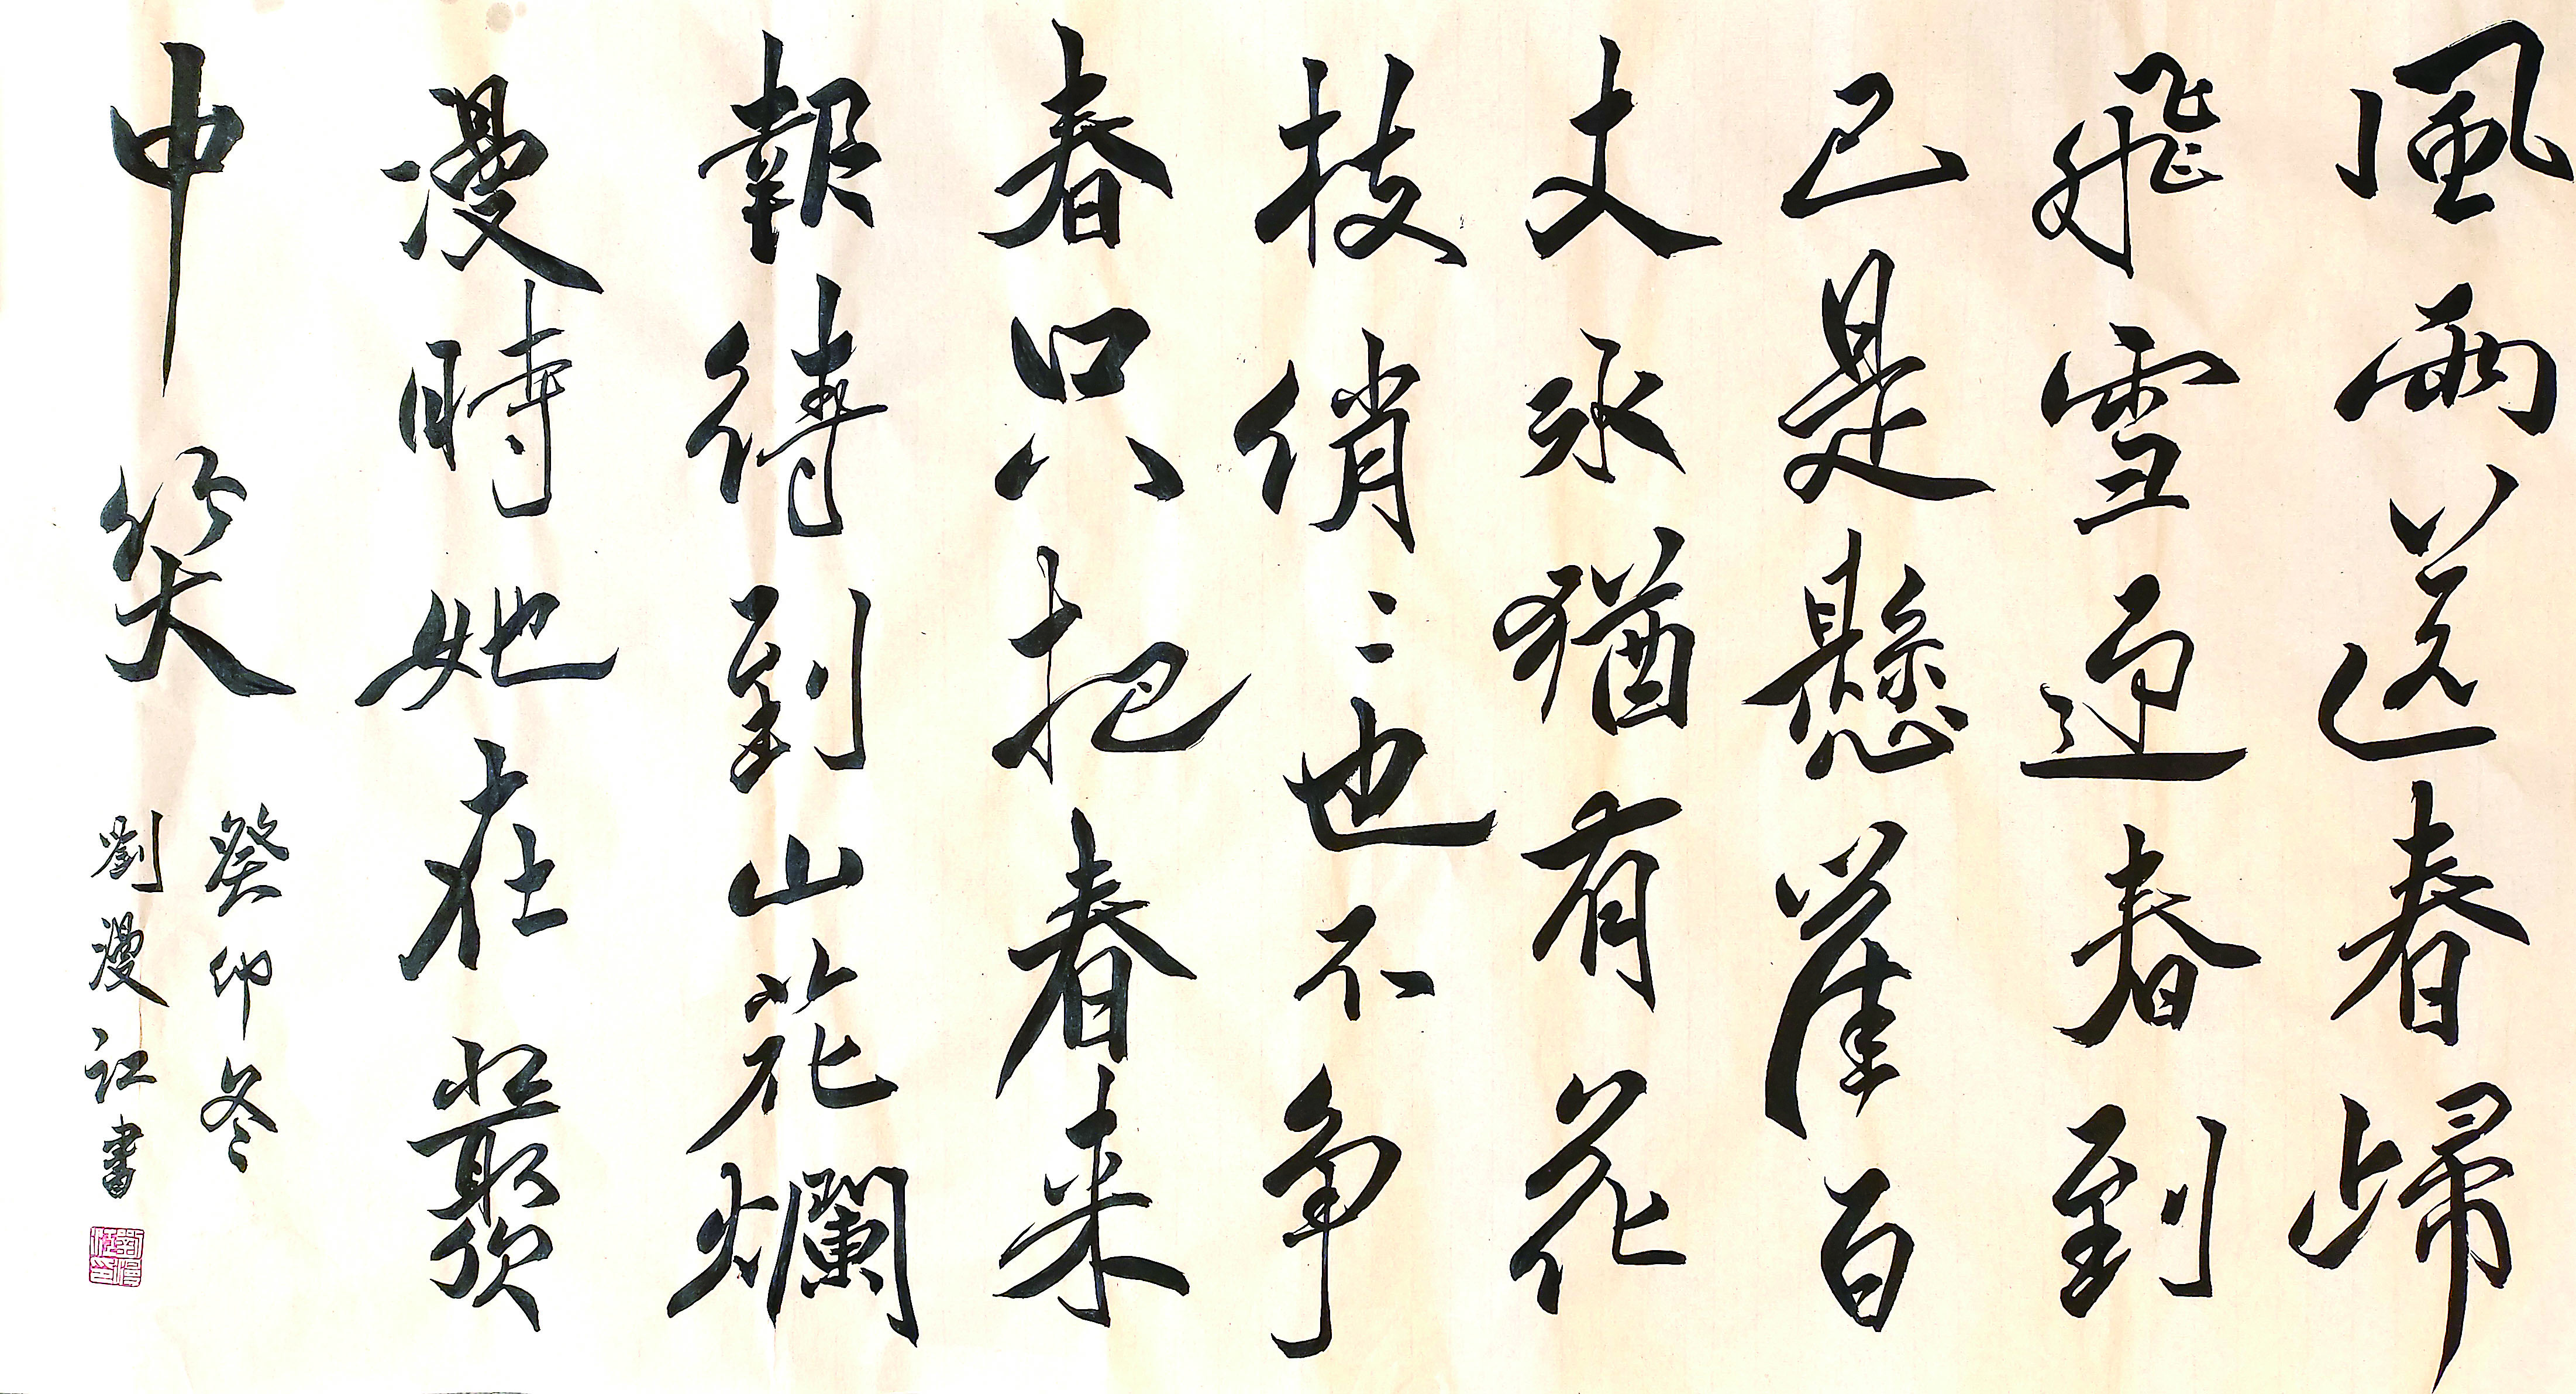 風雨送春歸
飛雪迎春到
已是懸崖百
丈冰猶有花
枝俏〻也不争
春只把春来
報待到山花爛
漫時她在叢
中笑
癸卯冬
劉漫江書